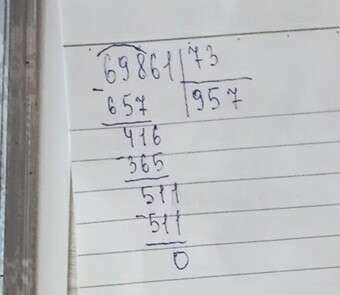 69861 73
657 957
416
365
511
511
0